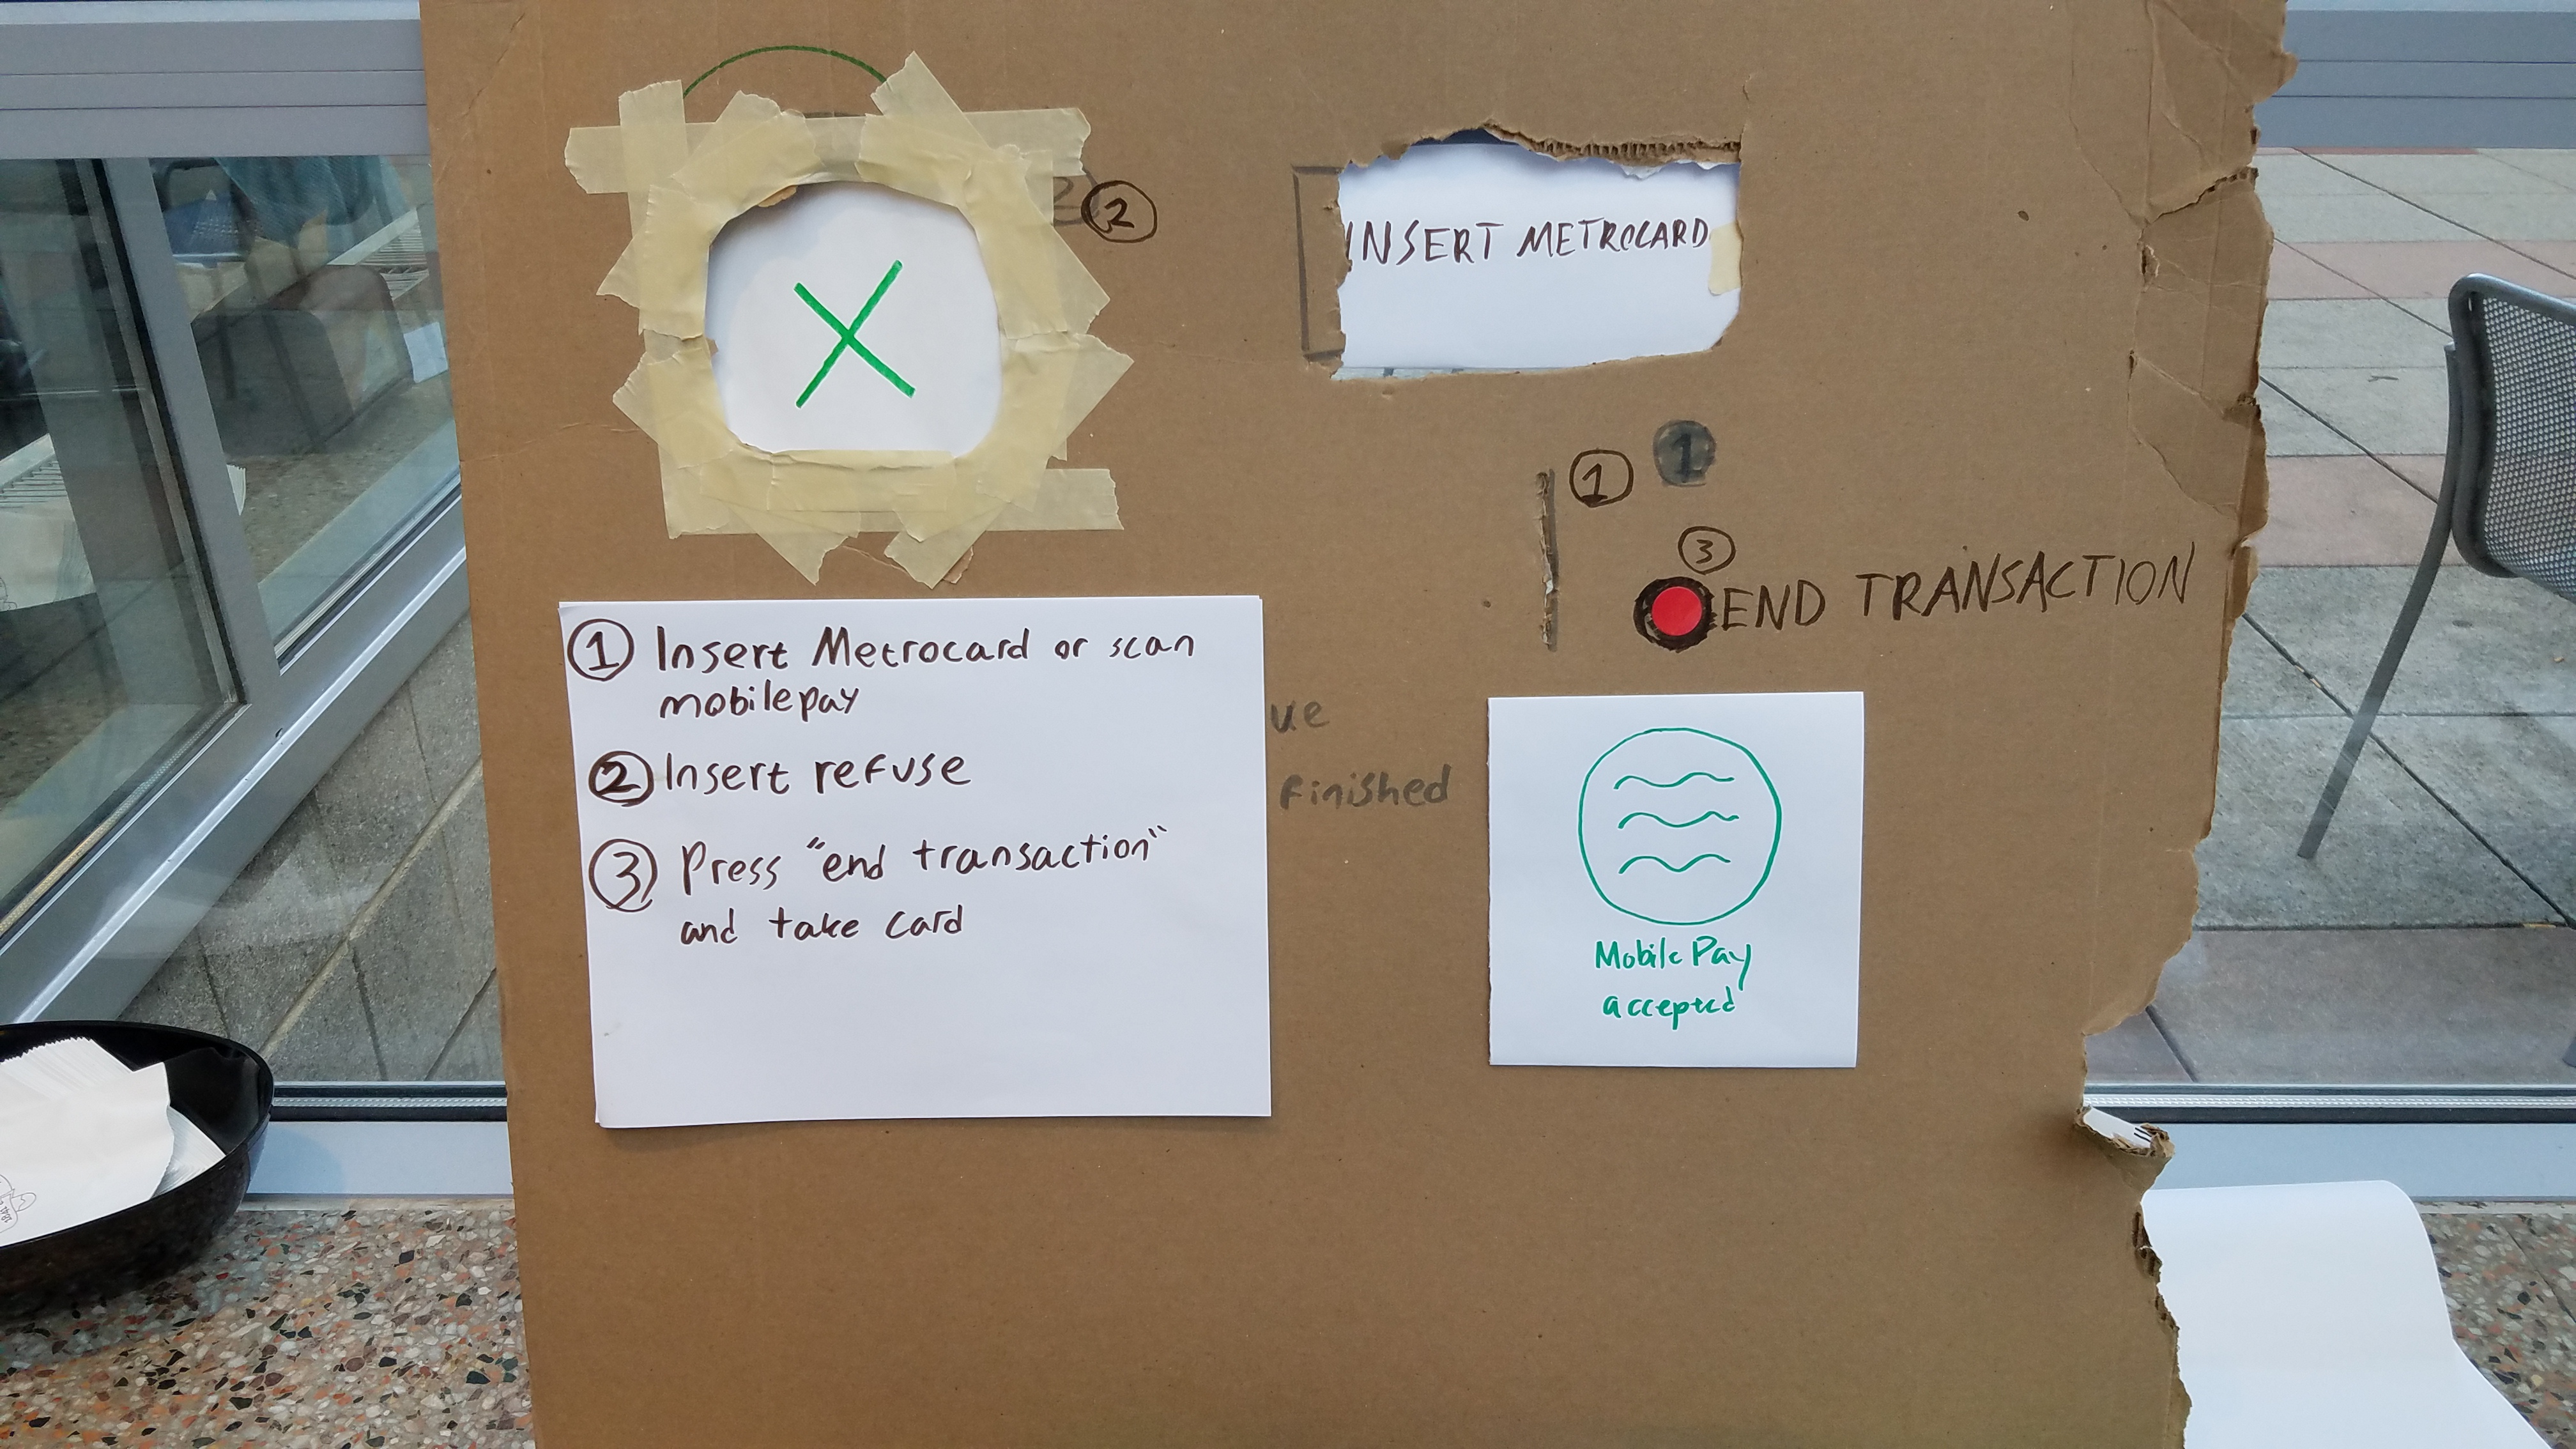 2
INSERT METROCARD
1
1
3
END TRANSACTION
1 Insert Metrocard or scan
mobilepay
2 Insert refuse
3 Press "end transaction"
and take card
ue
finished
Mobile Pay
accepted